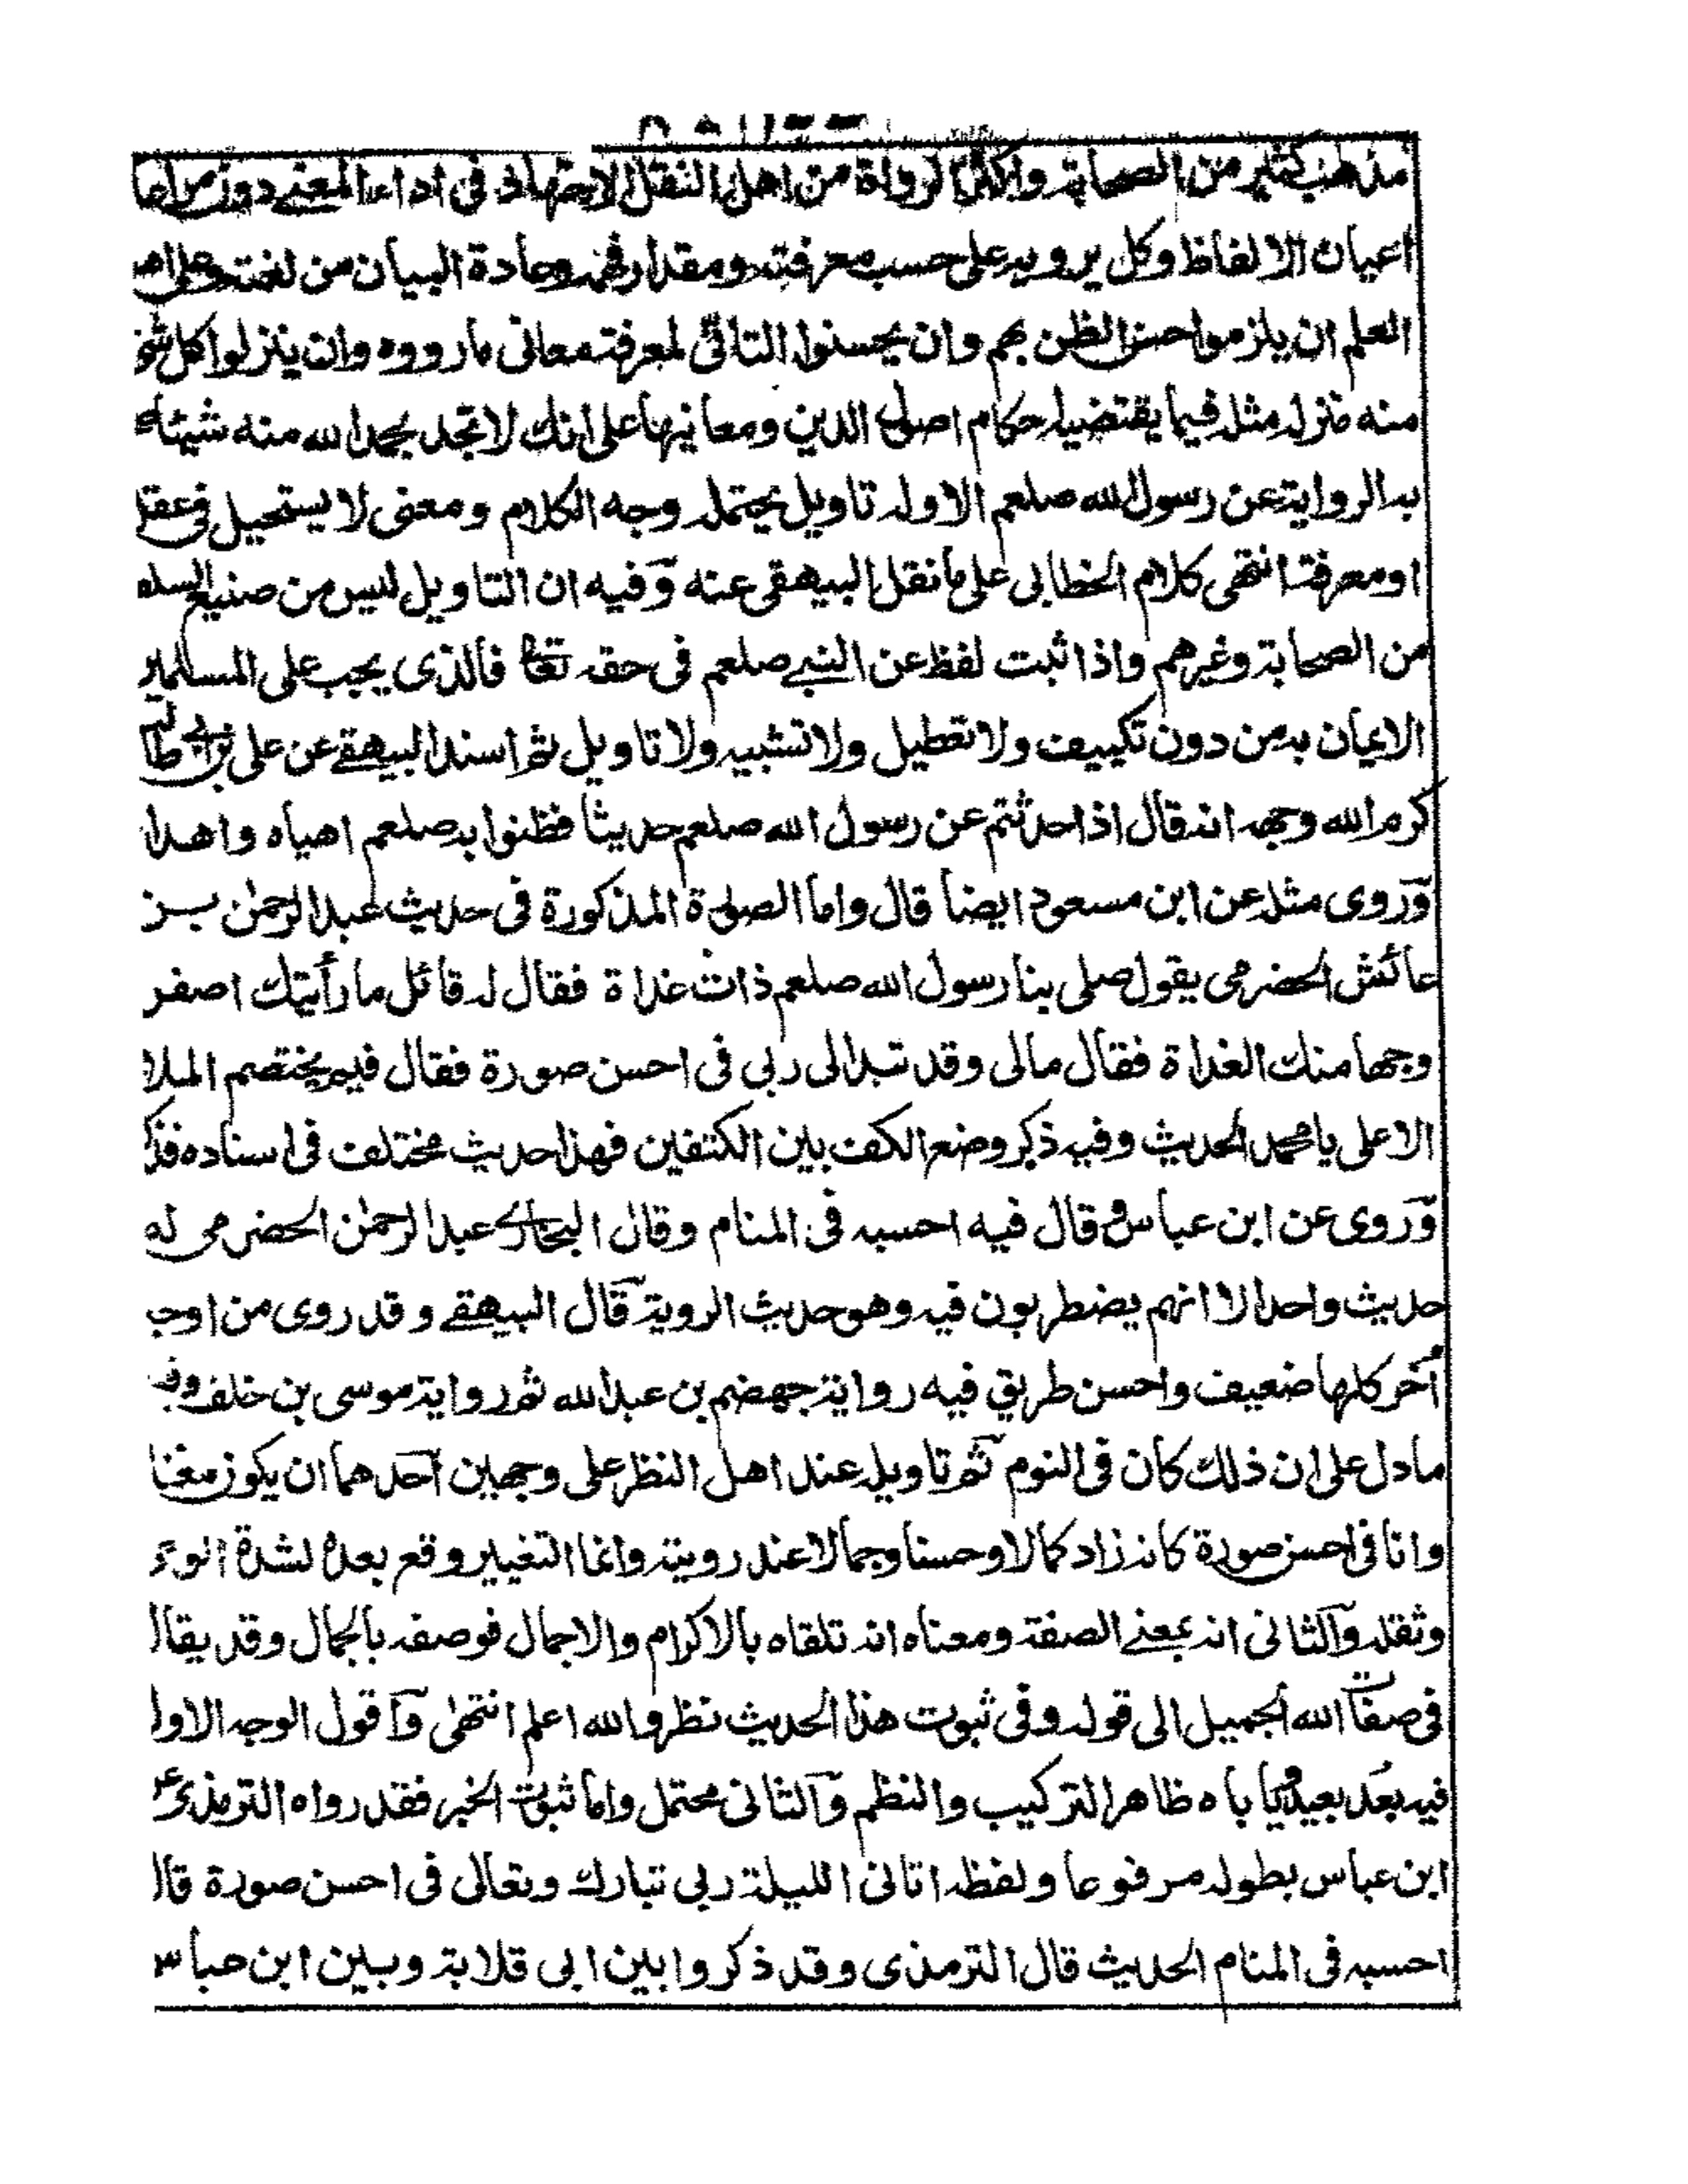 مذهب كثير من الصحابة واكثر الرواة من اهل النقل الاجتهاد فى اداء المعنے دون مراعا
اعيان الالفاظ وكل يرويه على حسب معرفته ومقدار فهمه وعادة البيان من لغته وعلى اهـ
العلم ان يلزموا حسن الظن بهم وان يحسنوا التاتّى لمعرفة معانى ما رووه وان ينزلوا كل شئ
منه منزلة مثله فيما يقتضيه احكام اصول الدين ومعانيها على انك لا تجد بحمد الله منه شيئا
به الرواية عن رسول الله صلعم الا وله تاويل يحتمله وجه الكلام ومعنى لا يستحيل فى عقل
او معرفة انتهى كلام الخطابى على ما نقل البيهقى عنه وفيه ان التاويل ليس من صنيع السلف
من الصحابة وغيرهم واذا ثبت لفظ عن النبے صلعم فى حقه تعا فالذى يجب على المسلمين
الايمان به من دون تكييف ولا تعطيل ولا تشبيه ولا تاويل ثم اسند البيهقے عن على بن ابى طالب
كرم الله وجهه انه قال اذا حدثتم عن رسول الله صلعم حديثا فظنوا به صلعم اهياه واهدا
وروى مثله عن ابن مسعود ايضا قال واما الصورة المذكورة فى حديث عبد الرحمٰن بن
عائش الحضرمى يقول صلى بنا رسول الله صلعم ذات غداة فقال له قائل ما رأيتك اصفر
وجها منك الغداة فقال مالى وقد تبدا لى ربى فى احسن صورة فقال فيم يختصم الملا
الاعلى يا محمد الحديث وفيه ذكر وضع الكف بين الكتفين فهذا حديث مختلف فى اسناده فذ
وروى عن ابن عباس وقال فيه احسبه فى المنام وقال البخارى عبد الرحمٰن الحضرمى له
حديث واحد الا انهم يضطربون فيه وهو حديث الروية قال البيهقے وقد روى من اوجه
أخر كلها ضعيف واحسن طريق فيه رواية جهضم بن عبد الله ثم رواية موسى بن خلف وفيه
ما دل على ان ذلك كان فى النوم ثم تاويله عند اهل النظر على وجهين احدهما ان يكون معنا
وانا فى احسن صورة كانه زاد كمالا وحسنا وجمالا عند رويته وانما التغيير وقع بعده لشدة الوحى
وثقله والثانى انه بمعنے الصفة ومعناه انه تلقاه بالاكرام والاجمال فوصفه بالجمال وقد يقال
فى صفات الله الجميل الى قوله وفى ثبوت هذا الحديث نظر والله اعلم انتهٰى واقول الوجه الاول
فيه بُعد بعيد ويا باه ظاهر التركيب والنظم والثانى محتمل واما ثبوت الخبر فقد رواه الترمذى عن
ابن عباس بطوله مرفوعا ولفظه اتانى الليلة ربى تبارك وتعالى فى احسن صورة قال
احسبه فى المنام الحديث قال الترمذى وقد ذكروا بين ابى قلابة وبين ابن عباس